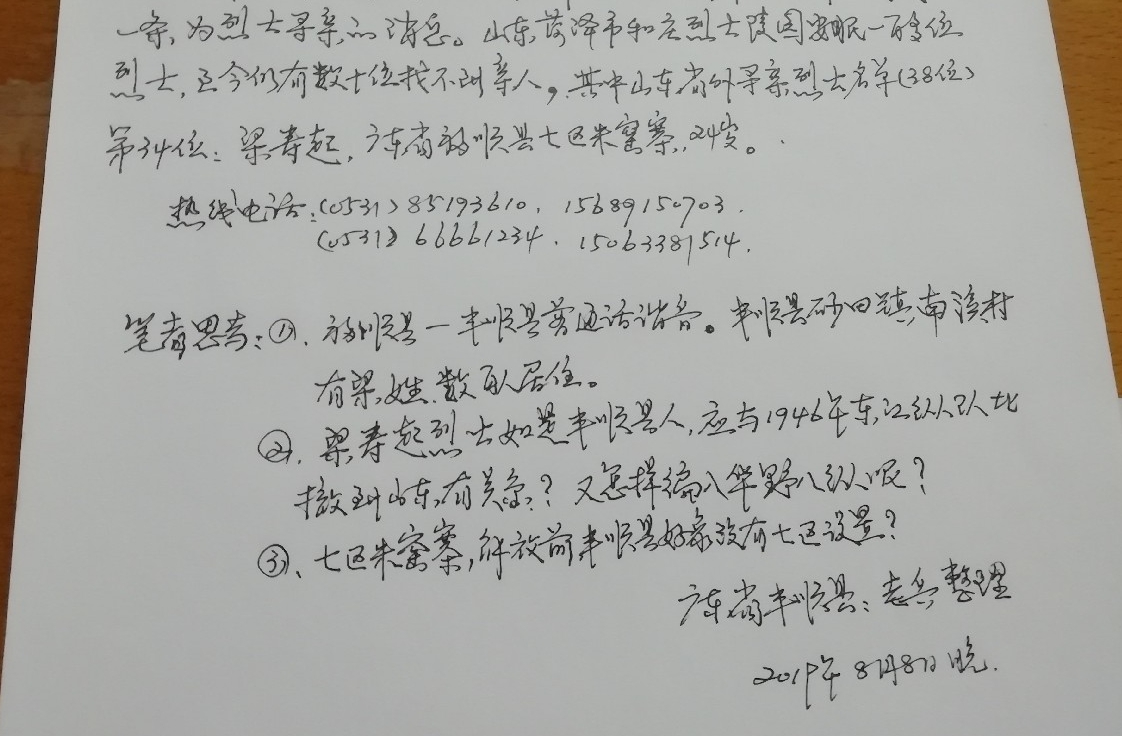 一条，为烈士寻亲的消息。山东菏泽市和庄烈士陵园安眠一百多位
烈士，至今仍有数十位找不到亲人，其中山东省外寻亲烈士名单（38位）
第34位：梁寿起，广东省 顺县七区朱窑寨，24岁。
热线电话：(0531)85193610．15689150703．
(0531) 66661234．15063381514．
笔者思考：①、 顺县一丰顺县普通话谐音。丰顺县砂田镇南溪村
有梁姓数百人居住。
②、梁寿起烈士如是丰顺县人，应与1946年东江纵队北
撤到山东有关系？又怎样编入华野八纵呢？
③、七区朱窑寨，解放前丰顺县好象没有七区设置？
广东省丰顺县：老兵整理
2019年8月8日晚．